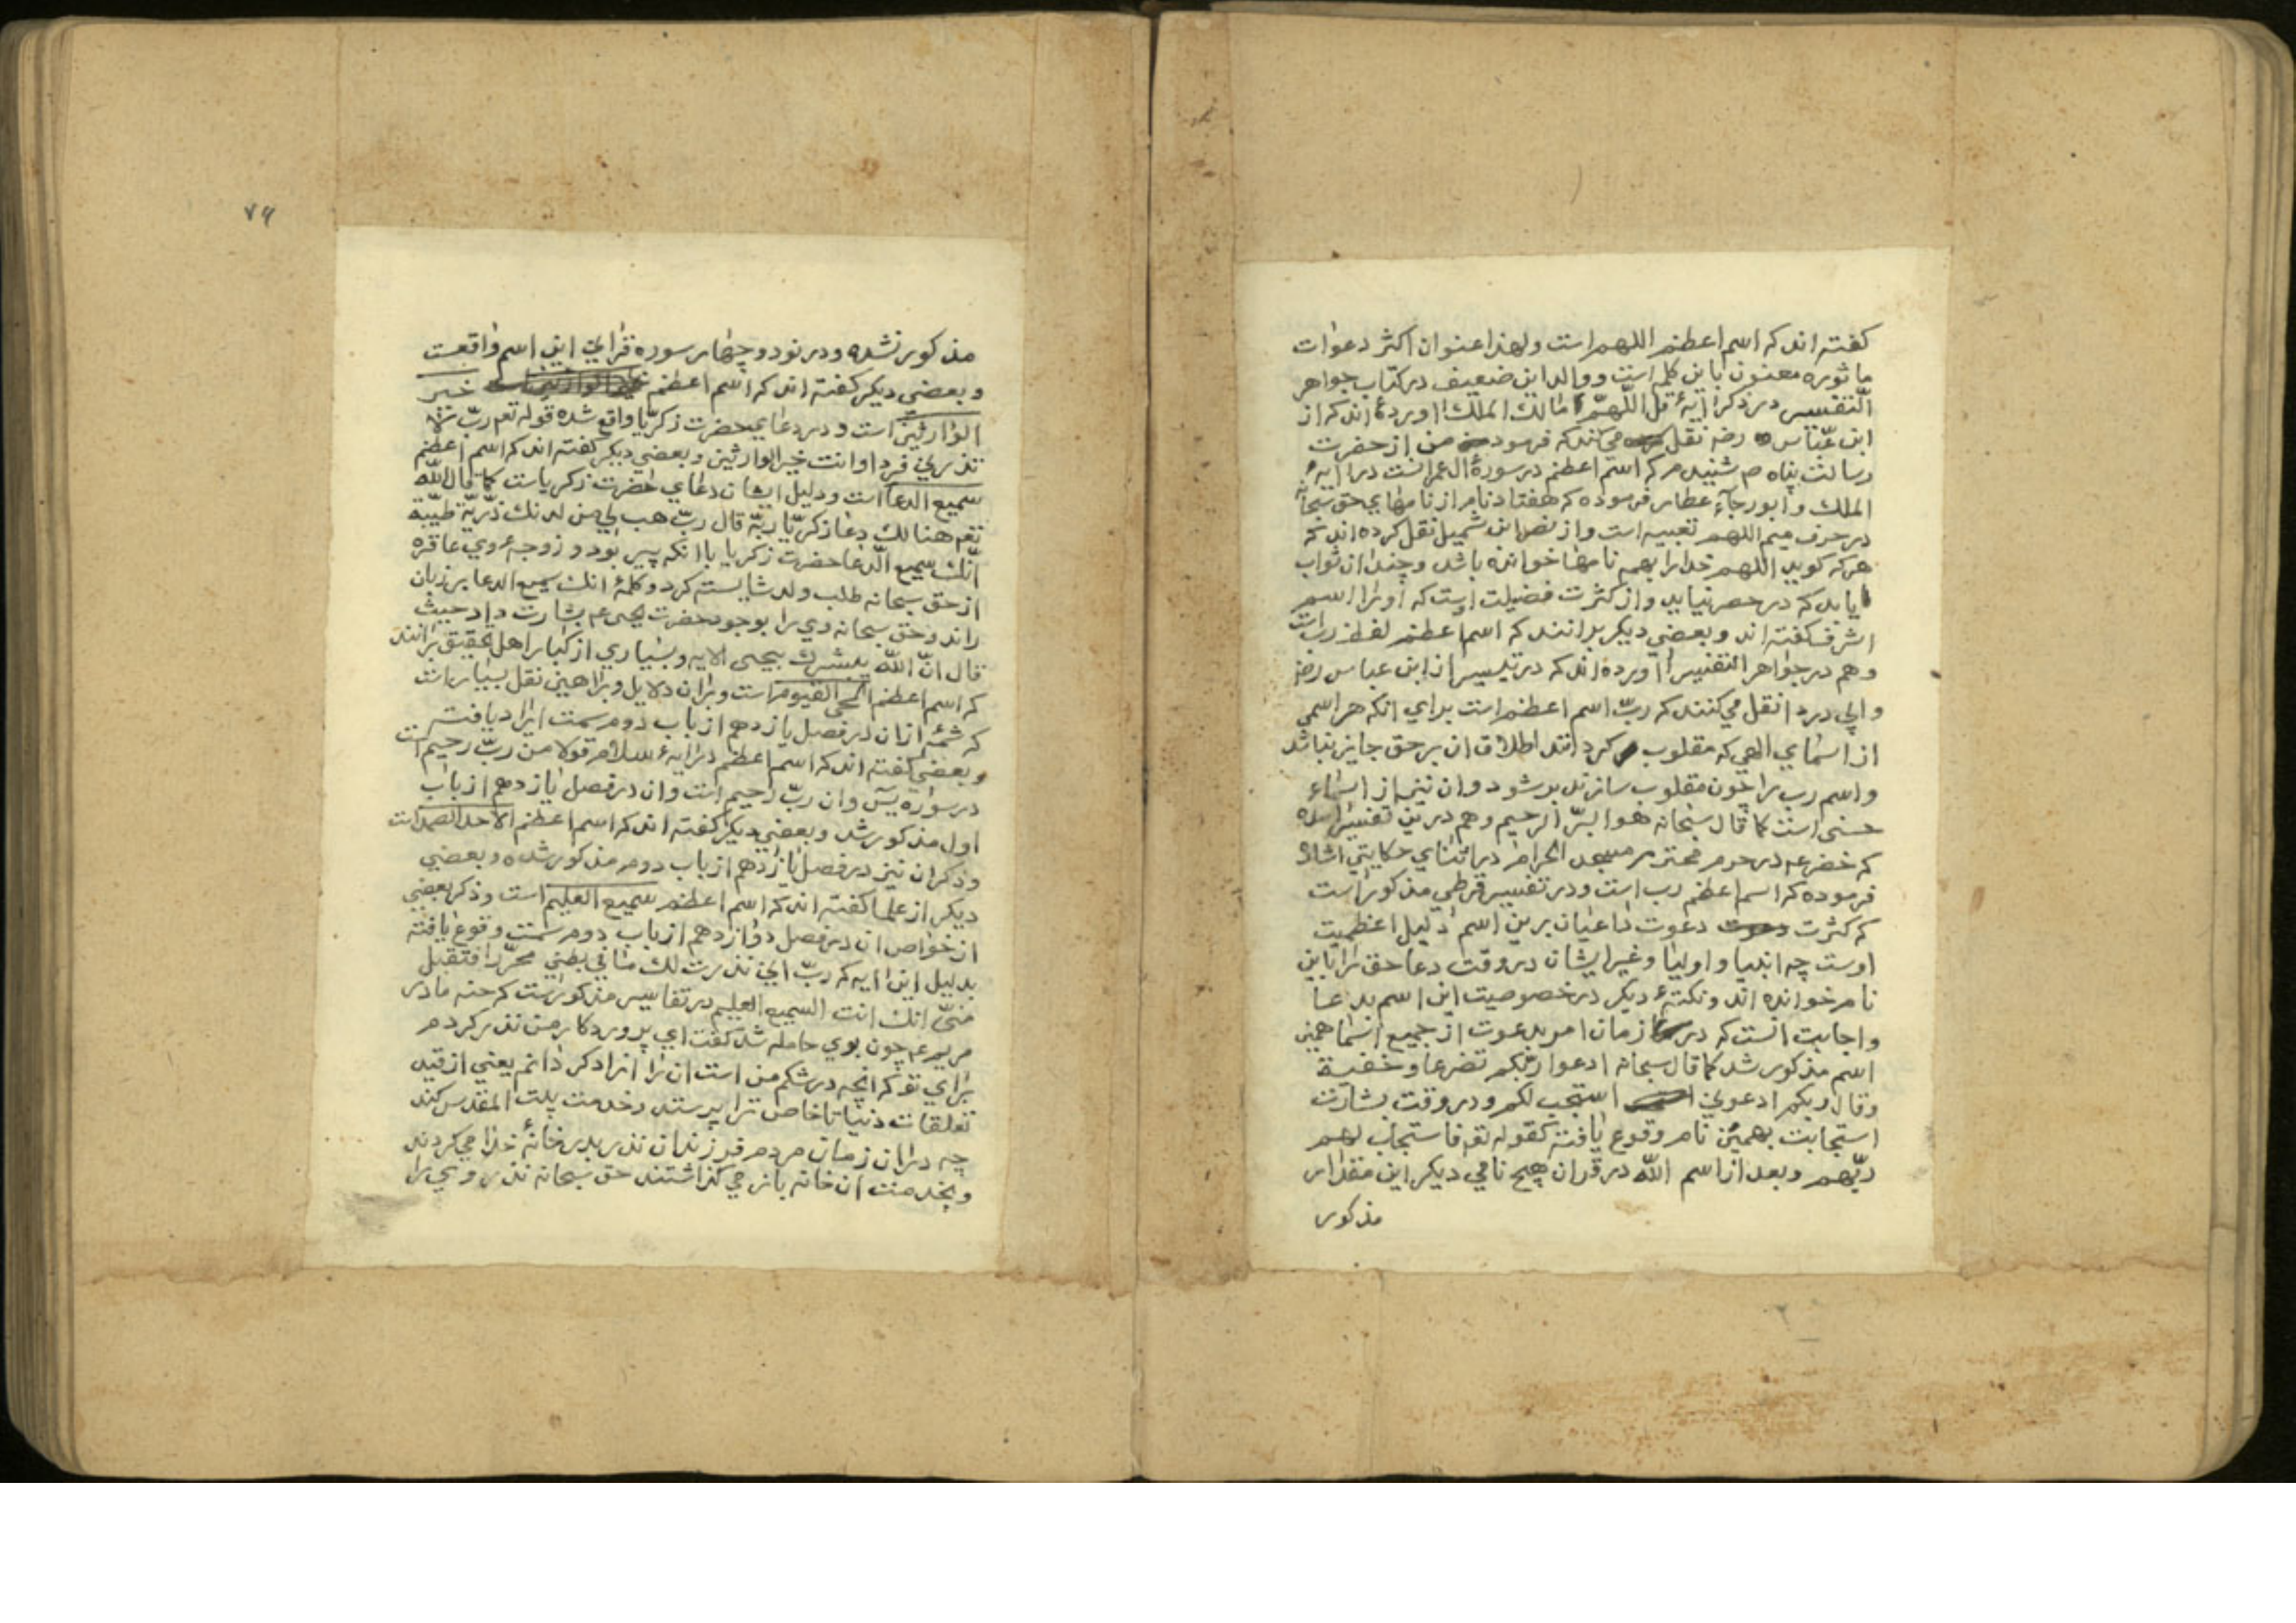 كفته اند كه اسم اعظم اللهم است ولهذا عنوان اكثر دعوات
ماثوره معنون باين كلمه است ووالد اين ضعيف در كتاب جواهر
التفسير در ذكر ايهٔ قل اللّهمّ مالك الملك اورده اند كه از
ابن عبّاس رضه نقل ميكند كه فرمود من از حضرت
رسالت پناه ص شنيدم كه اسم اعظم در سورهٔ ال عمرانست در ايهٔ
الملك وابو رجاء عطار فرموده كه هفتاد نام از نامهاي حق سبحانه
در حرف ميم اللهم تعبيه است واز نضر ابن شميل نقل كرده اند كه
هركه كويد اللهم خدا را بهمه نامها خوانده باشد وچندان ثواب
يابد كه در حصر نيايد واز كثرت فضيلت اوست كه او را اسم
اشرف كفته اند وبعضي ديكر بدانند كه اسم اعظم لفظ رب است
وهم در جواهر التفسير اورده اند كه در تيسير از ابن عباس رضه
وابي دردا نقل مي كنند كه ربّ اسم اعظم است براي انكه هر اسمي
از اسماي الهي كه مقلوب كردانند اطلاق ان بر حق جايز نباشد
واسم رب را چون مقلوب سازند بر شود وان نيز از اسماء
حسنى است كما قال سبحانه هو البرّ الرحيم وهم درين تفسير امده
كه خضر عم در حرم محترم مسجد الحرام در اثناي حكايتي اشاره
فرموده كه اسم اعظم رب است ودر تفسير قرطبي مذكور است
كه كثرت دعوت داعيان برين اسم دليل اعظميت
اوست چه انبيا و اوليا وغير ايشان در وقت دعا حق را باين
نام خوانده اند ونكتهٔ ديكر در خصوصيت اين اسم بدعا
واجابت انست كه در زمان امر بدعوت از جميع اسما همين
اسم مذكور شد كما قال سبحانه ادعوا ربكم تضرعا وخفية
وقال ربكم ادعوني استجب لكم ودر وقت بشارت
استجابت بهمين نام وقوع يافته كقوله تع فاستجاب لهم
ربّهم وبعد از اسم اللّه در قران هيچ نامي ديكر اين مقدار
مذكور
٧٩
مذكور نشده ودر نود وچهار سوره قراني اين اسم واقعست
وبعضي ديكر كفته اند كه اسم اعظم خير
الوارثين است ودر دعاي حضرت زكريّا واقع شده قوله تعم ربّ لا
تذرني فردا وانت خير الوارثين وبعضي ديكر كفته اند كه اسم اعظم
سميع الدعا است ودليل ايشان دعاي حضرت زكرياست كما قال اللّه
تعم هنالك دعا زكريّا ربّه قال ربّ هب لي من لدنك ذرّيّة طيّبة
انّك سميع الدعا حضرت زكريا با انكه پير بود و زوجهٔ وي عاقره
از حق سبحانه طلب ولد شايسته كرد وكلمهٔ انك سميع الدعا بر زبان
راند وحق سبحانه وي را بوجود حضرت يحيى عم بشارت داد حيث
قال انّ اللّه يبشرك بيحيى الايه وبسياري از كبار اهل تحقيق برانند
كه اسم اعظم الحى القيوم است وبران دلايل وبراهين نقل بسيار است
كه شمّهٔ ازان در فصل يازدهم از باب دوم سمت ايراد يافت
وبعضي كفته اند كه اسم اعظم در ايهٔ سلام قولا من ربّ رحيم است
در سوره يس وان ربّ رحيم است وان در فصل يازدهم از باب
اول مذكور شد وبعضي ديكر كفته اند كه اسم اعظم الاحد الصمد است
وذكر ان نيز در فصل يازدهم از باب دوم مذكور شده وبعضي
ديكر از علما كفته اند كه اسم اعظم سميع العليم است وذكر بعضي
از خواص ان در فصل دوازدهم از باب دوم سمت وقوع يافته
بدليل اين ايه كه ربّ انّي نذرت لك ما في بطني محرّرا فتقبل
منّي انك انت السميع العليم در تفاسير مذكور است كه حنه مادر
مريم عم چون بوي حامله شد كفت اي پروردكار من نذر كردم
براي تو كه انچه در شكم من است ان را ازاد كردانم يعني از قيد
تعلقات دنيا تا خاص ترا پرستد وخدمت بيت المقدس كند
چه دران زمان مردم فرزندان نذر بدر خانهٔ خدا مي كردند
وبخدمت ان خانه باز مي كذاشتند حق سبحانه نذر وي را